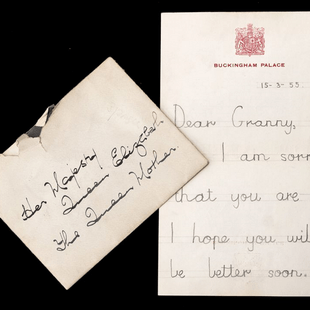 Her Majesty
Queen Elizabeth
The Queen Mother.
BUCKINGHAM PALACE
15-3-55.
Dear Granny,
I am sorr
that you are
I hope you wil
be better soon.